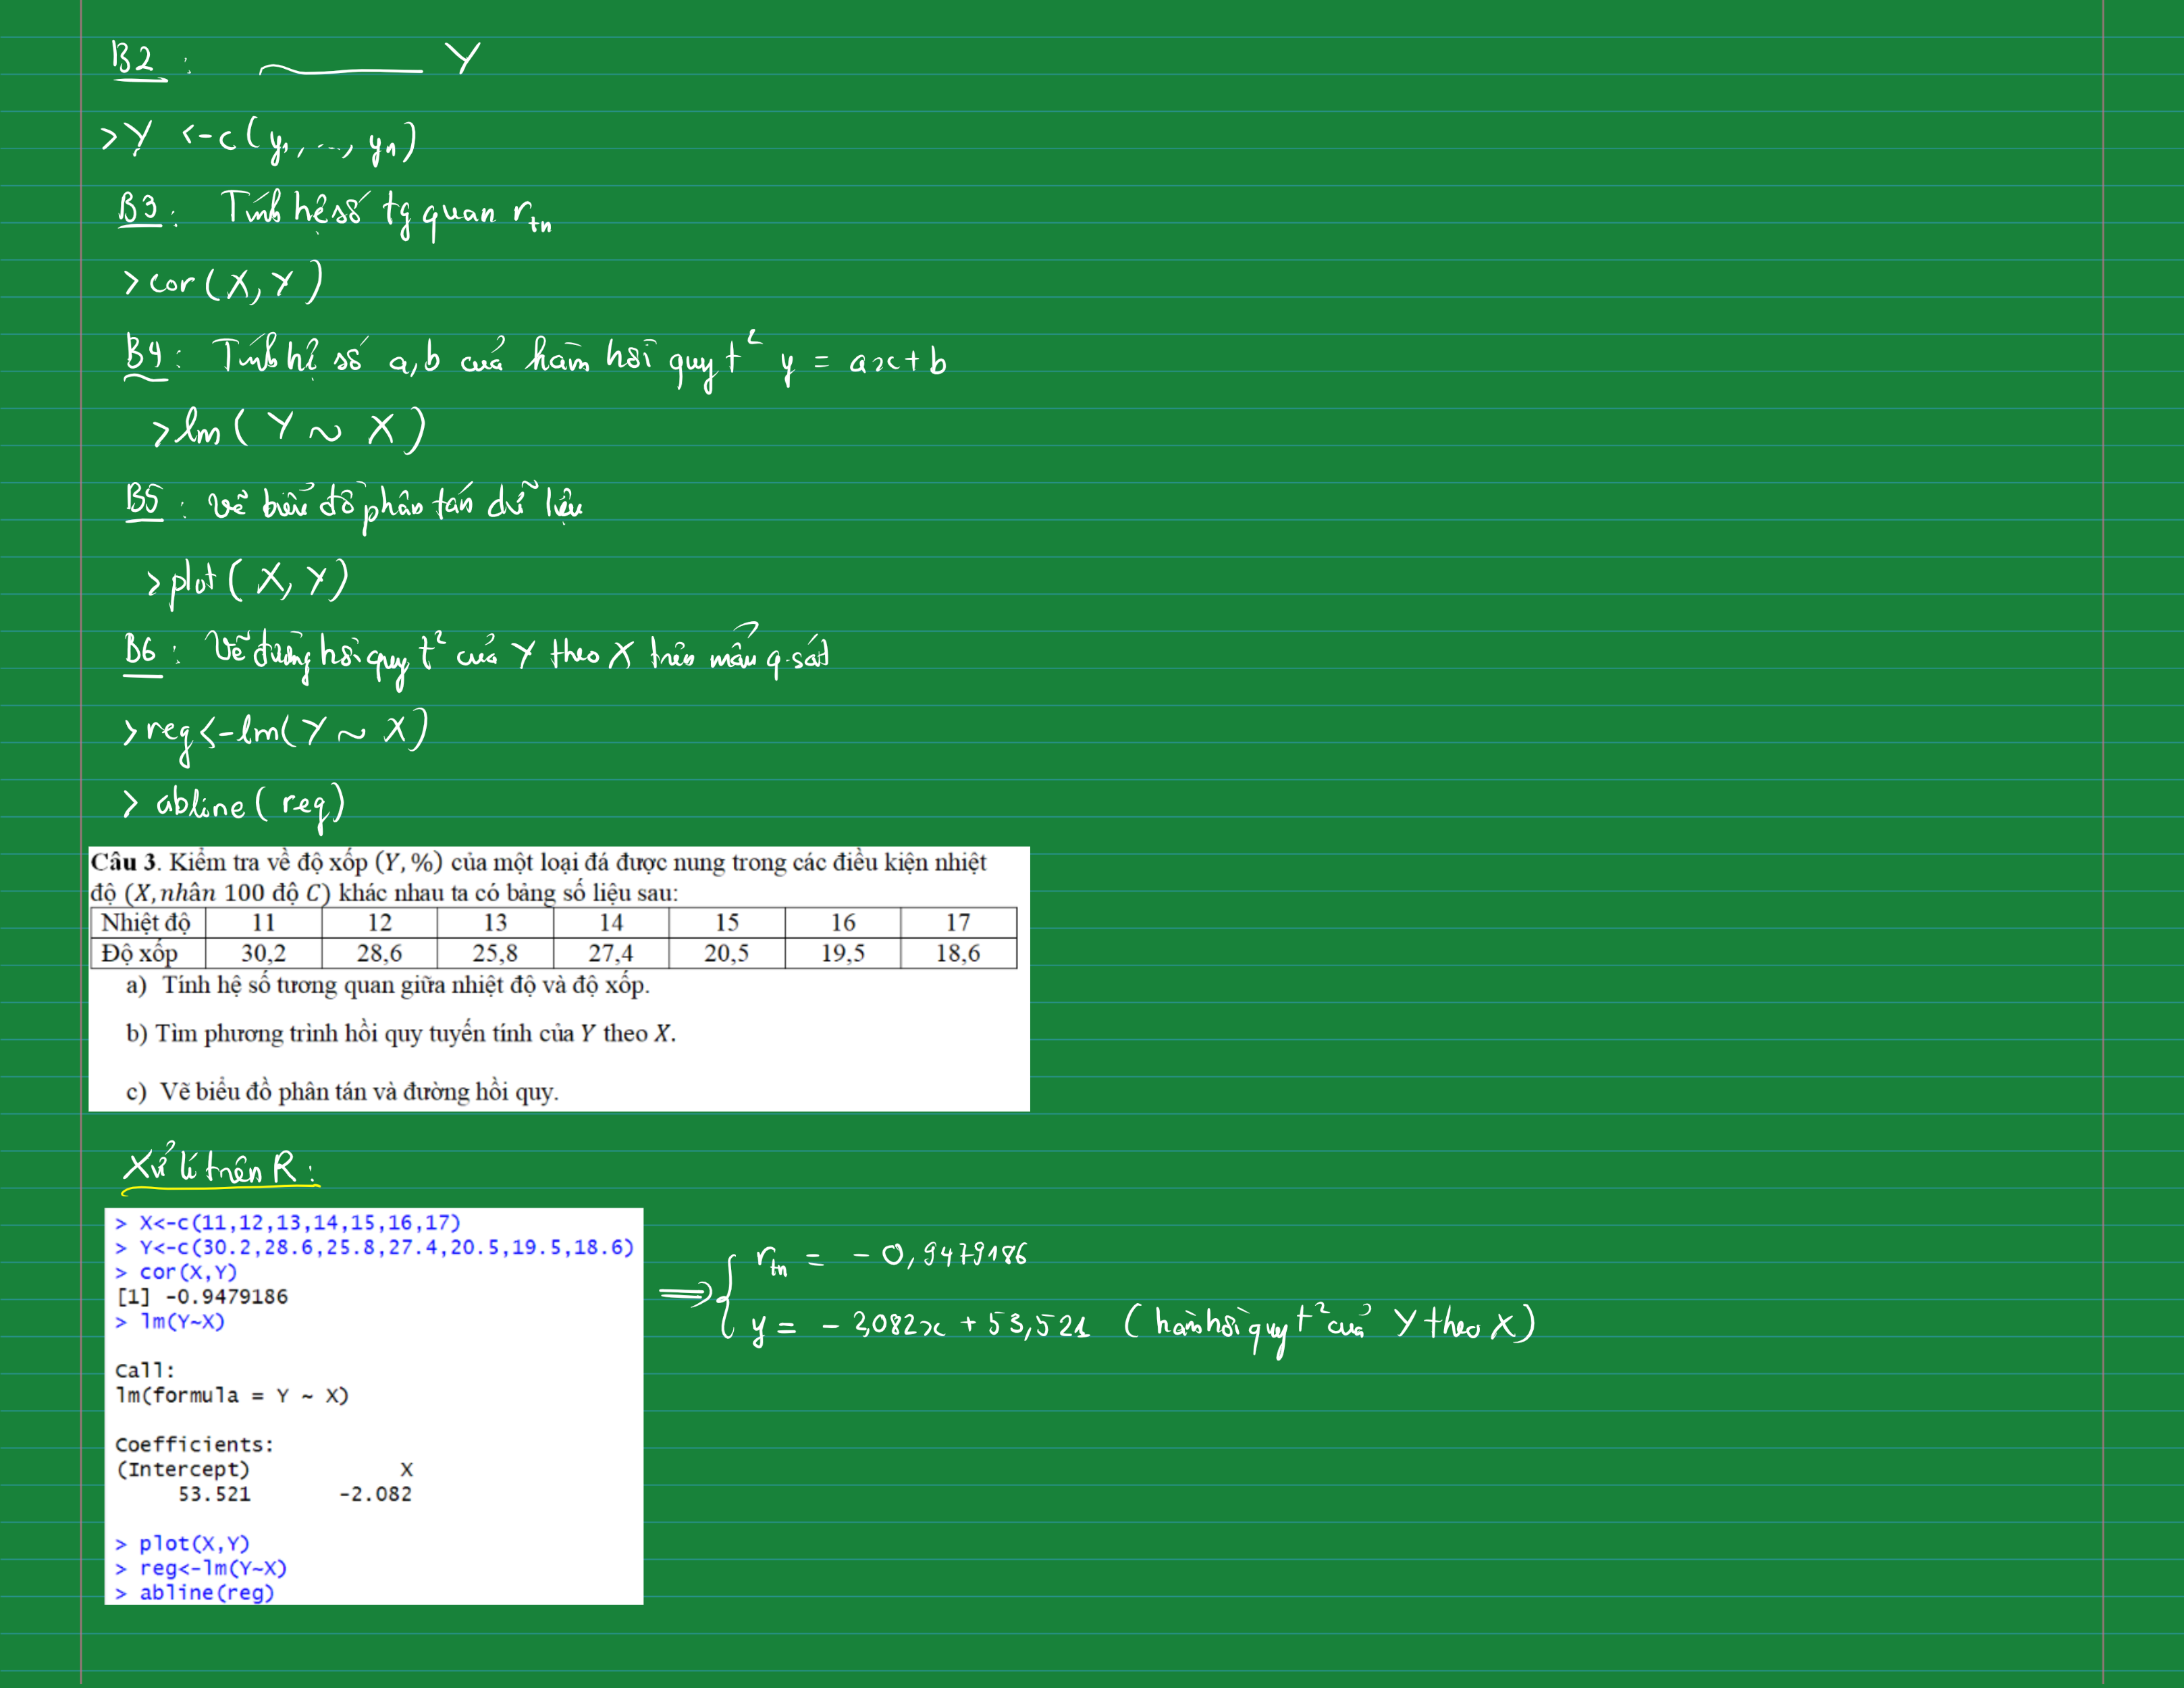 B2 : Y
>Y <-c(y₁, ..., yₙ)
B3 : Tính hệ số tg quan r_tn
>cor(X,Y)
B4 : Tính hệ số a,b của hàm hồi quy t² y = ax+b
>lm( Y ~ X)
B5 : Vẽ biểu đồ phân tán dữ liệu
>plot( X, Y)
B6 : Vẽ đường hồi quy t² của Y theo X trên mẫu q.sát
>reg<-lm(Y ~ X)
> abline( reg)
Câu 3. Kiểm tra về độ xốp (Y, %) của một loại đá được nung trong các điều kiện nhiệt
độ (X, nhân 100 độ C) khác nhau ta có bảng số liệu sau:
Nhiệt độ 11 12 13 14 15 16 17
Độ xốp 30,2 28,6 25,8 27,4 20,5 19,5 18,6
a) Tính hệ số tương quan giữa nhiệt độ và độ xốp.
b) Tìm phương trình hồi quy tuyến tính của Y theo X.
c) Vẽ biểu đồ phân tán và đường hồi quy.
Xử lí trên R :
> X<-c(11,12,13,14,15,16,17)
> Y<-c(30.2,28.6,25.8,27.4,20.5,19.5,18.6)
> cor(X,Y)
[1] -0.9479186
> lm(Y~X)
Call:
lm(formula = Y ~ X)
Coefficients:
(Intercept) X
53.521 -2.082
> plot(X,Y)
> reg<-lm(Y~X)
> abline(reg)
⟹ { r_tn = - 0,9479186
y = - 2,082x + 53,521 ( hàm hồi quy t² của Y theo X)